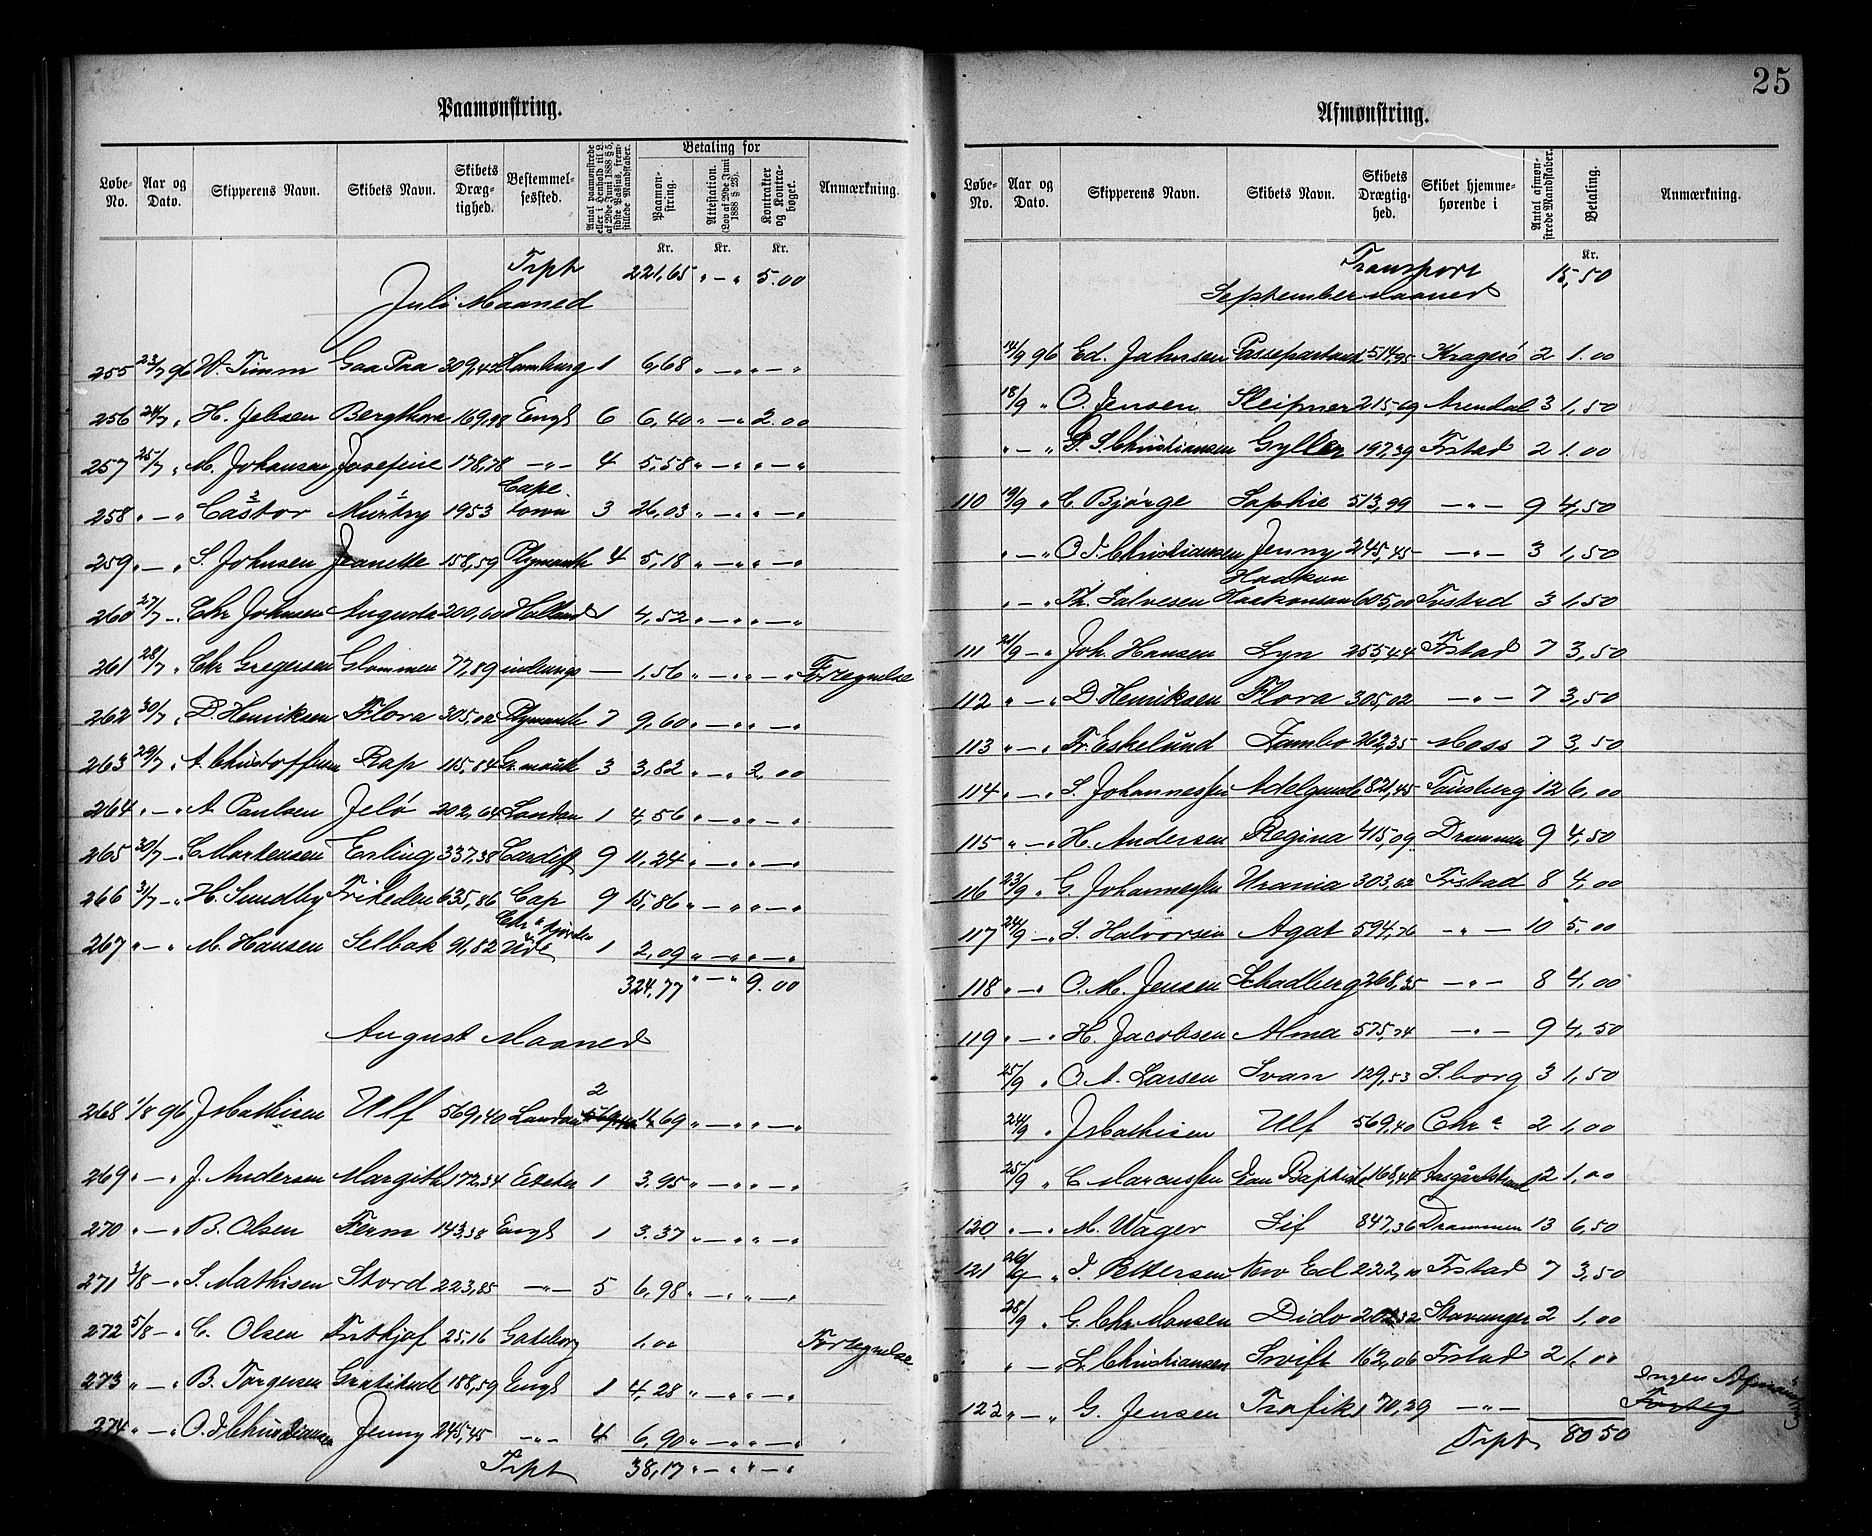 25
Paamønstring.
Løbe-No. | Aar og Dato. | Skipperens Navn. | Skibets Navn. | Skibets Dræg-tighed. | Bestemmel-sessted. | Antal paamønstrede eller i Henhold til L. af 29de Juni 1888 § 5, sidste Passus, frem-stillede Mandskaber. | Betaling for Paamøn-string. | Attestation. (Lov af 29de Juni 1888 § 23). | Kontrakter og Kontra-bøger. | Anmærkning.
Kr. Kr. Kr.
Trpt 221,65 " — " 5.00
Juli Maaned
255 23/7 96 W. Timm Gaa Paa 309,42 Hamburg 1 6,68 " — " " — "
256 24/7 " H. Jebsen Bergthora 169,98 Engl 6 6,40 " — " 2.00
257 25/7 " M. Johansen Josefine 178,78 — " — 4 5,58 " — " " — "
258 " — " Castor Murtry 1953 Cape town 3 26,03 " — " " — "
259 " — " S. Johnsen Jeanette 158,59 Plymouth 4 5,18 " — " " — "
260 27/7 — " Chr Johnsen Augusta 200,60 Holland 1 4,52 " — " " — "
261 28/7 " Chr Gregersen Glommen 77,89 indenrigs — 1,56 " — " " — " Fortegnelse
262 30/7 " D. Henriksen Flora 305,02 Plymouth 7 9,60 " — " " — "
263 29/7 " A. Christoffersen Rap 115,84 Gr.mouth 3 3,82 " — " 2.00
264 " — " A. Paulsen Jelö 202,64 London 1 4,56 " — " " — "
265 30/7 — " C Mortensen Erling 337,38 Cardiff 9 11,24 " — " " — "
266 31/7 — " H. Sundby Friheden 635,86 Cap 9 15,86 " — " " — "
267 " — " M. Hansen Selbak 91,82 Chr a fjorden Ude 1 2,09 " — " " — "
324,77 " — " 9.00
August Maaned
268 1/8 96 J Mathisen Ulf 569,40 London 2 14,69 " — " " — "
269 " — " J. Andersen Margith 172,34 Exeter 1 3,95 " — " " — "
270 " — " B. Olsen Ferm 143,38 Engl 1 3.37 " — " " — "
271 3/8 — " S. Mathisen Stord 223,85 — " — 5 6,98 " — " " — "
272 5/8 — " C. Olsen Frithjof 25,16 Goteborg 1,00 Fortegnelse
273 " — " B. Torgersen Gratitude 188,59 Engl 1 4,28 " — " " — "
274 " — " O. J Christiansen Jenny 245,45 — " — 4 6,90 " — " " — "
Trpt 38,17 " — " " — "
Afmønstring.
Løbe-No. | Aar og Dato. | Skipperens Navn. | Skibets Navn. | Skibets Drægtig-hed. | Skibet hjemme-hørende i | Antal afmøn-strede Mandskaber. | Betaling. | Anmærkning.
Kr.
Transport 15,50
September Maaned
14/9 96 Ed. Jahnsen Passepartout 514,95 Kragerö 2 1.00
18/9 " O. Jensen Sleipner 215,69 Arendal 3 1,50
" — " G. S. Christiansen Gyller 197,39 Frstad 2 1.00
110 19/9 " C. Bjørge Sophie 513,99 — " — 9 4,50
" — " O J. Christiansen Jenny 245,45 — " — 3 1,50
" — " Th. Salvesen Haakon Haakonsen 605,00 Frstad 3 1,50
111 21/9 — " Joh. Hansen Lyn 255,44 Frstad 7 3,50
112 " — " D. Henriksen Flora 305,02 — " — 7 3,50
113 " — " Fr. Eskelund Jambo 262,35 Moss 7 3,50
114 " — " S. Johannessen Adelgunde 821,45 Tønsberg 12 6,00
115 " — " H. Andersen Regina 415,09 Drammen 9 4,50
116 23/9 " G. Johannessen Urania 303,62 Frstad 8 4,00
117 24/9 — " S. Halvorsen Agat 594,76 — " — 10 5.00
118 " — " O. M. Jensen Schadberg 268,35 — " — 8 4,00
119 " — " H. Jacobsen Alma 575,74 — " — 9 4,50
25/9 " O. A. Larsen Svan 129,53 S.borg 3 1,50
24/9 " J Mathisen Ulf 569,40 Chr a 2 1,00
25/9 " C Marcussen Jean Baptiste 168,44 Aasgårdstrand 2 1,00
120 " — " M. Wager Sif 847,36 Drammen 13 6,50
121 26/9 — " J. Pettersen New Ed 222,10 Frstad 7 3,50
28/9 " G. Chr. Monsen Dido Stavanger 2 1,00
" — " L. Christiansen Swift 162,06 Frstad 2 1.00
122 " — " G. Jensen Trafik 170,29 — " — Ingen Afmönstring
Trpt 80 50